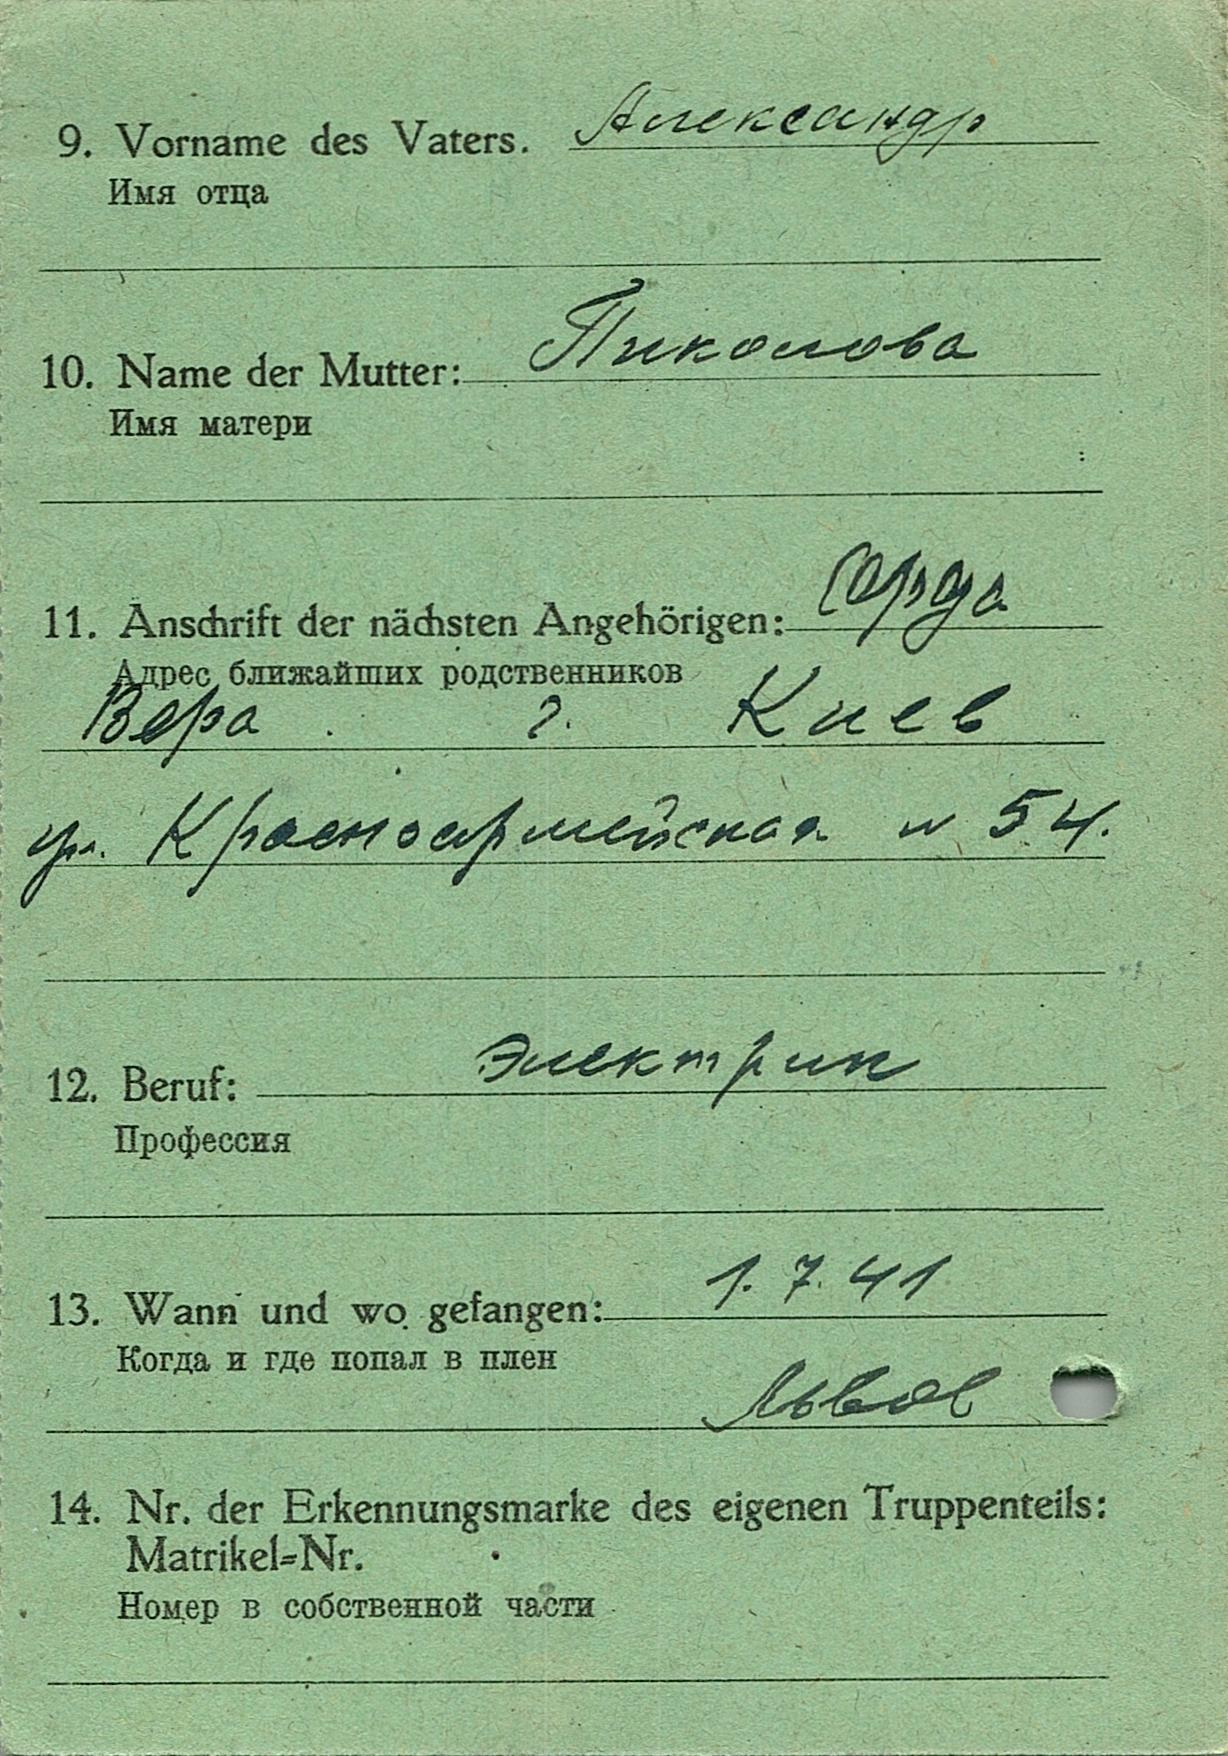 9. Vorname des Vaters. Александр
Имя отца
10. Name der Mutter: Пиколова
Имя матери
11. Anschrift der nächsten Angehörigen: Сорда
Адрес ближайших родственников
Вера г. Киев
ул. Красноармейская № 54.
12. Beruf: Электрик
Профессия
13. Wann und wo gefangen: 1. 7. 41
Когда и где попал в плен
Львов
14. Nr. der Erkennungsmarke des eigenen Truppenteils:
Matrikel=Nr.
Номер в собственной части